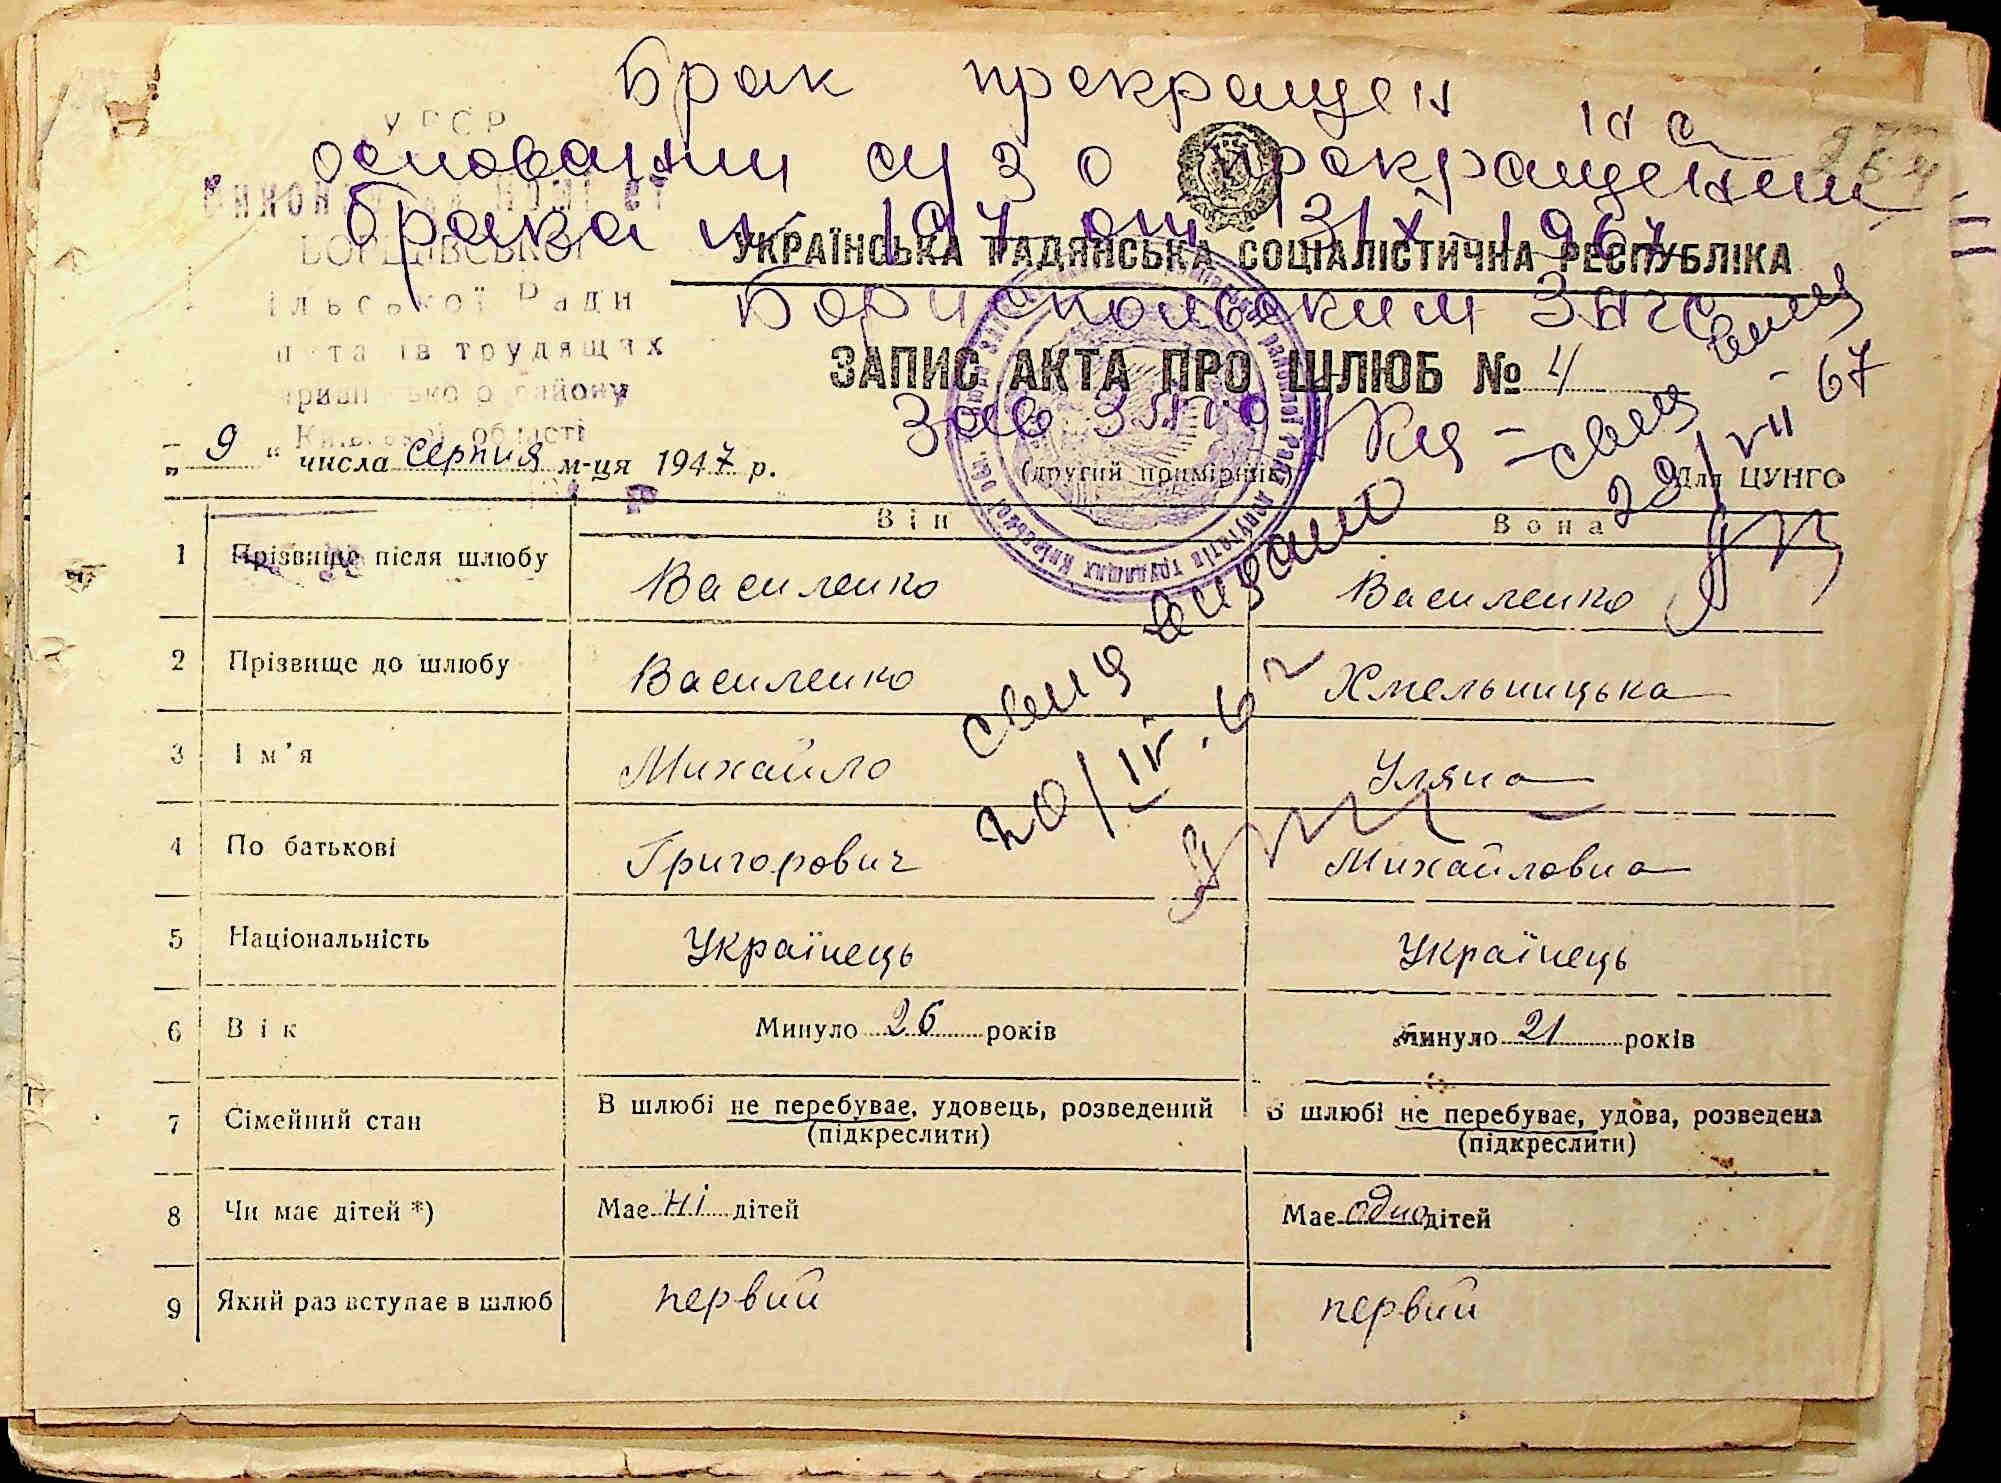 Брак прекращен на
основании а/з о прекращении
брака № 197 от 31/X-1967
Бориспольским Загс
Зав Загс
УРСР
Виконавчий комітет
сільської Ради
депутатів трудящих
району
Київської області
УКРАЇНСЬКА РАДЯНСЬКА СОЦІАЛІСТИЧНА РЕСПУБЛІКА
ЗАПИС АКТА ПРО ШЛЮБ № 4
„ 9 “ числа серпня м-ця 1947 р.
(другий примірник)
Для ЦУНГО
Він Вона
1 Прізвище після шлюбу Василенко Василенко
2 Прізвище до шлюбу Василенко Хмельницька
3 Ім'я Михайло Уляна
4 По батькові Григорович Михайловна
5 Національність Українець Українець
6 Вік Минуло 26 років Минуло 21 років
7 Сімейний стан В шлюбі не перебуває, удовець, розведений В шлюбі не перебуває, удова, розведена
(підкреслити) (підкреслити)
8 Чи має дітей *) Має ні дітей Має одно дітей
9 Який раз вступає в шлюб первий первий